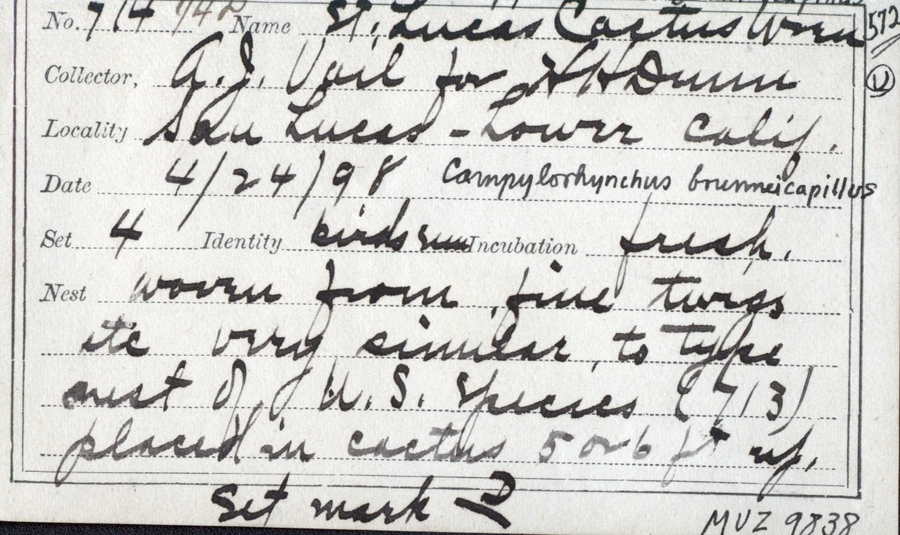 No. 714 742 Name St. Lucas Cactus Wren 572
Collector, A. J. Vail for H H Dunn U
Locality San Lucas - Lower Calif.
Date 4/24/98 Campylorhynchus brunneicapillus
Set 4 Identity birds seen Incubation fresh.
Nest woven from fine twigs
etc very similar to type
nest of U. S. Species (713)
placed in cactus 5 or 6 ft up.
Set mark
MVZ 9838